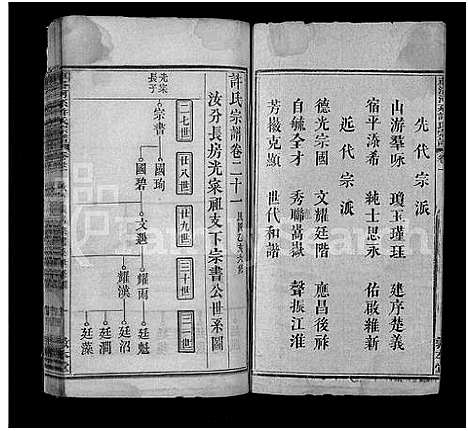 先代宗派
山游羣咏 瓊玉瑾珏 建序楚義
宿平添希 純士思永 佑啟維新
近代宗派
德光宗國 文耀廷階 應昌後祥
自毓全才 秀聯嵩嶽 聲振江淮
芳徽克顯 世代和諧
許氏宗譜卷二十一
汝分長房光寀祖支下宗書公世系圖
光寀長子
宗書
國琦
國碧
文遇
耀雨
耀漢
廷魁
廷沼
廷澗
廷藻
二七世
廿八世
廿九世
三十世
三一世